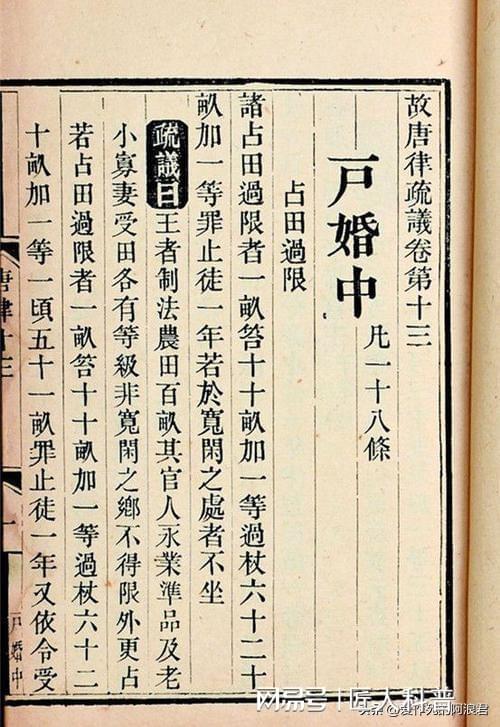 故唐律疏議卷第十三
戸婚中
凡一十八條
占田過限
諸占田過限者一畝笞十十畝加一等過杖六十二十
畝加一等罪止徒一年若於寬閑之處者不坐
疏議曰王者制法農田百畝其官人永業準品及老
小寡妻受田各有等級非寬閑之鄉不得限外更占
若占田過限者一畝笞十十畝加一等過杖六十二
十畝加一等一頃五十一畝罪止徒一年又依令受
唐律十三
一
戸婚中
网易号 | 匠人科普
头条
阿浪君